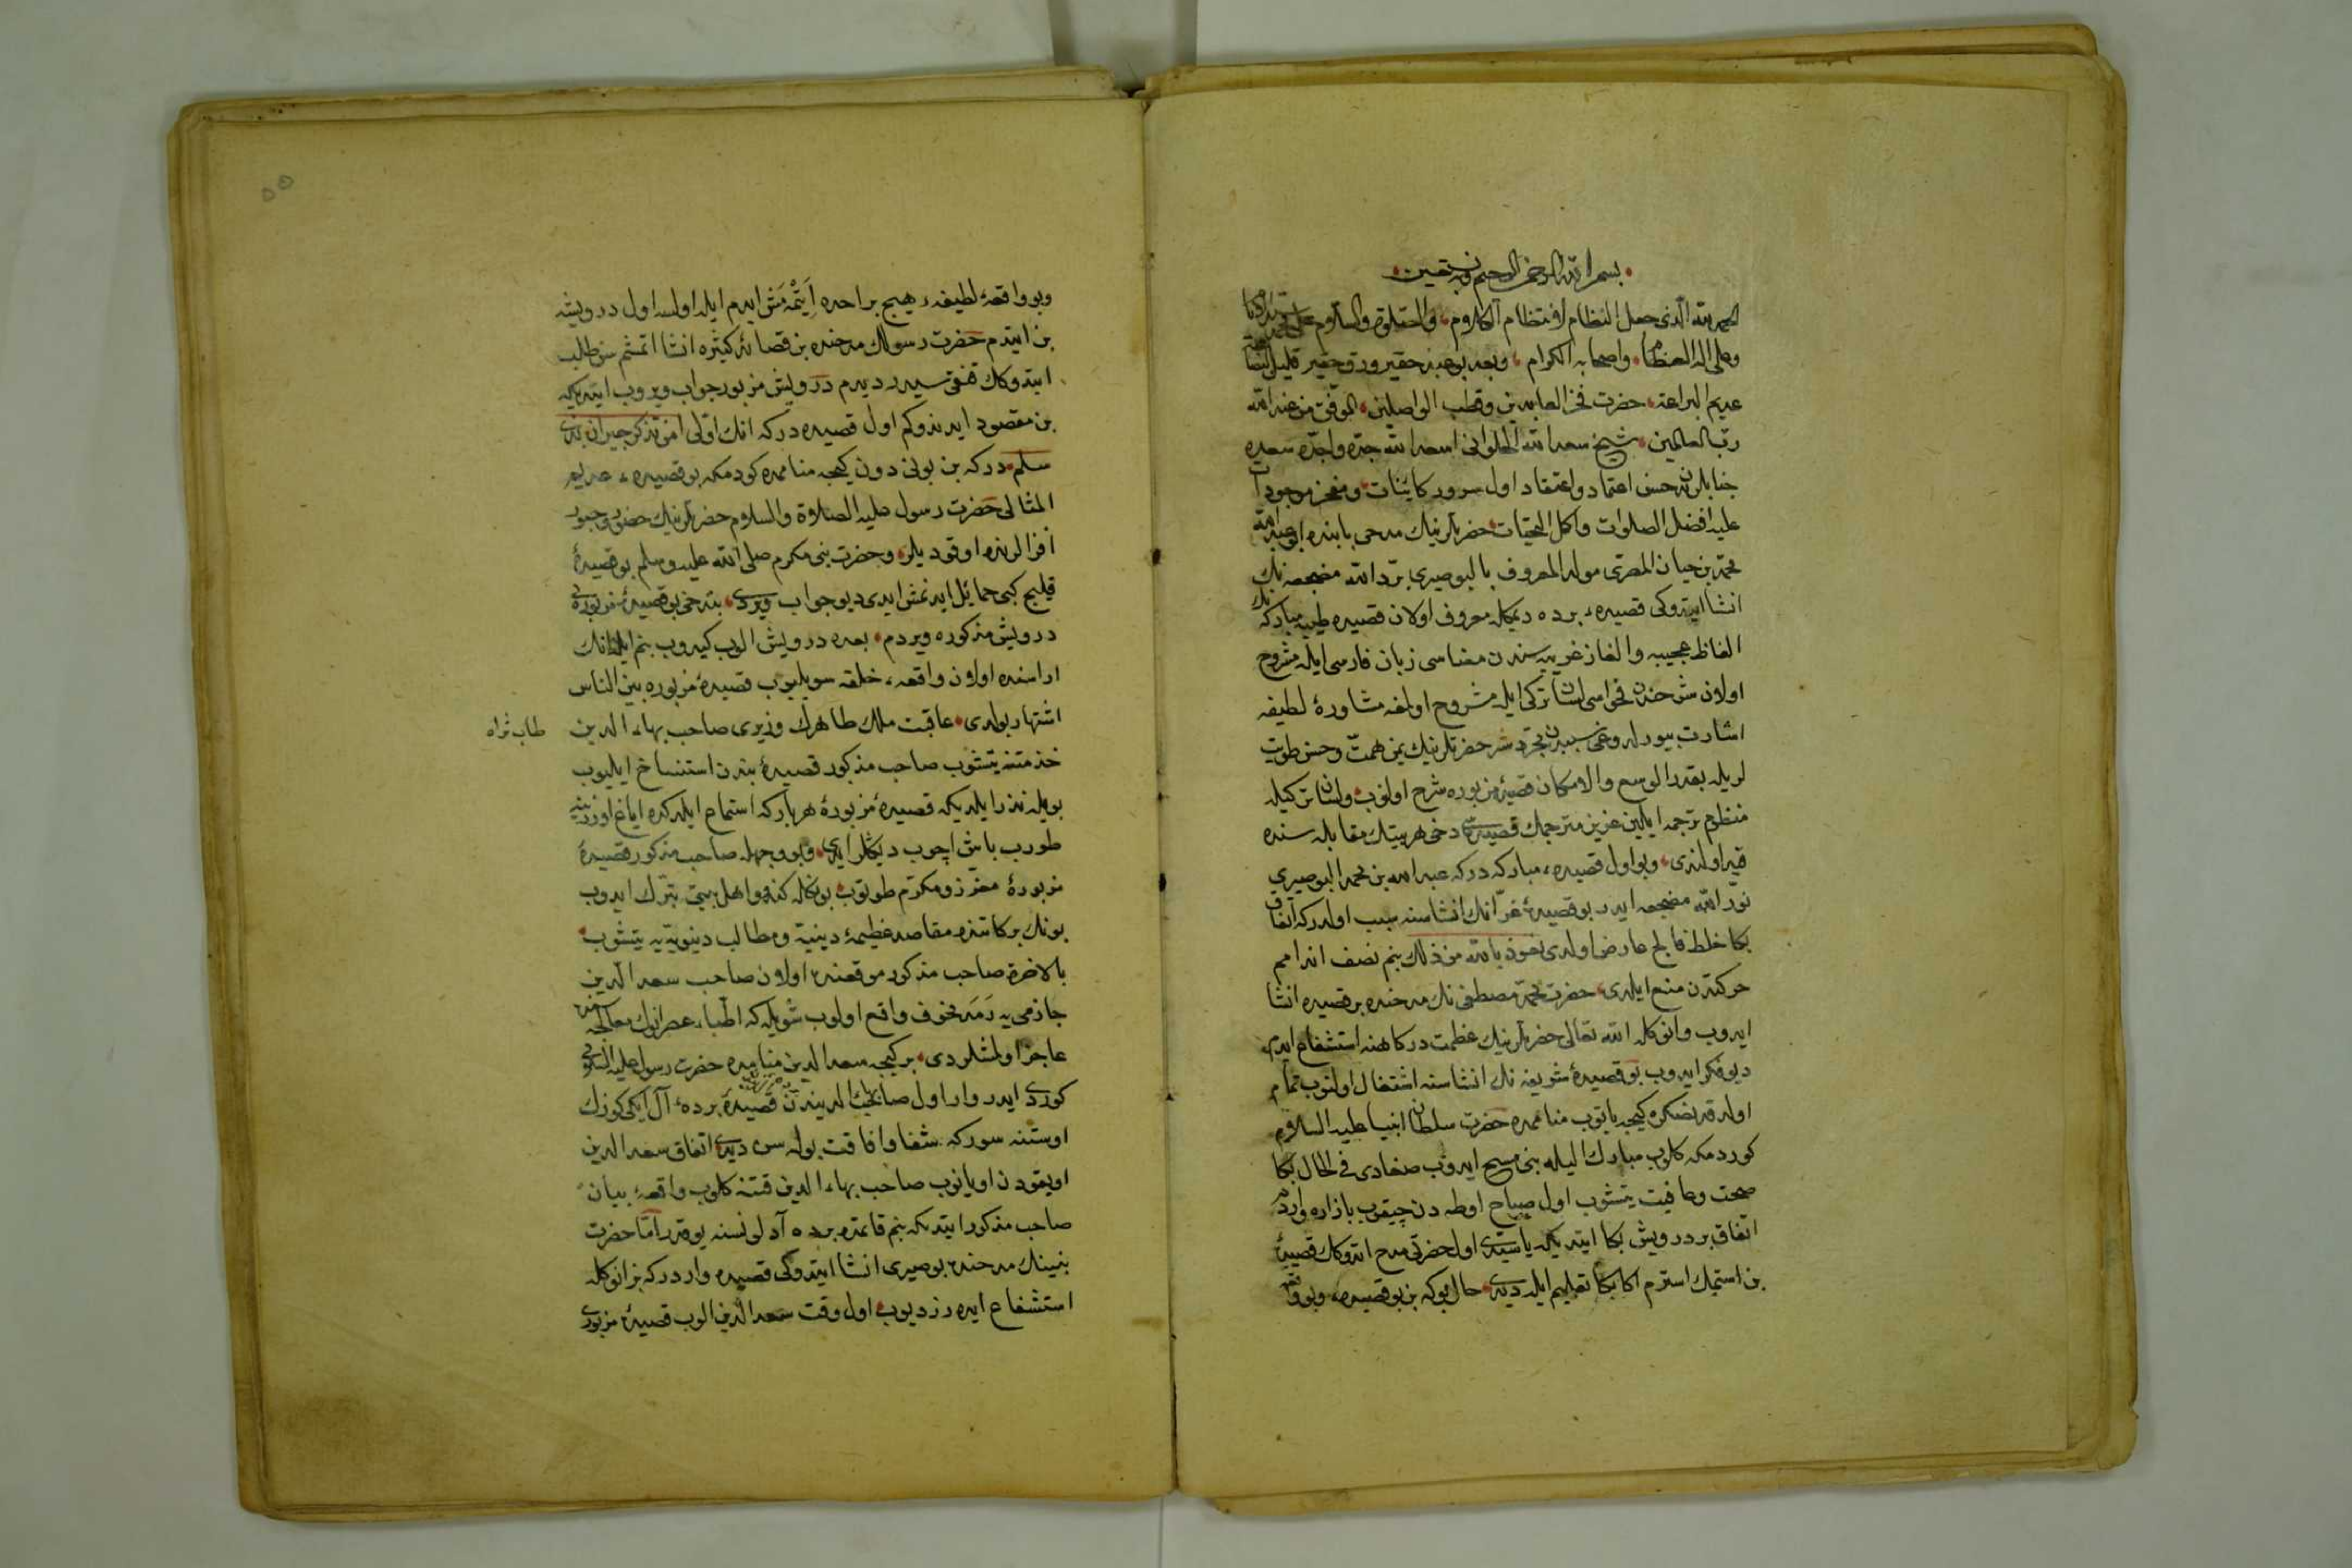 بسم الله الرحمن الرحيم وبه نستعين
الحمد لله الذى جعل النظام لانتظام الكلام والصلوة والسلام على محمد
وعلى اله العظام واصحابه الكرام وبعد بو عبد حقير ورق حقير قليل البضاعه
عديم البراعه حضرت فخر العابدين وقطب الواصلين الموفق من عند الله
رب العالمين شيخ سعد الله الخلوانى اسعد الله جده واجده سعده
جنابلرنه حسن اعتماد واعتقاد اول سرور كاينات ومفخر موجودات
عليه افضل الصلوات واكمل التحيات حضرتلرينك مدحى بابنده ابو عبد الله
محمد بن حيان المصرى مولد المعروف بالبوصيرى برد الله مضجعه نك
انشا ايتدوكى قصيده برده ديمكله معروف اولان قصيده طيبه مباركه نك
الفاظ عجيبه والغاز غريبه سندن معناسى زبان فارسى ايله مشروح
اولان شرحندن فحواسى لسان تركى ايله مشروح اولمغه مشاوره لطيفه
اشارت بيورلدوغى سببدن مجرد شر حضرتلرينك يمن همت وحسن طويت
لريله بقدر الوسع والامكان قصيده مزبوره شرح اولنوب ولسان تركيله
منظوم ترجمه ايلين عزيز مترجمك قصيده سى دخى هر بيتك مقابله سنده
قيد اولندى وبو اول قصيده مباركه دركه عبد الله بن محمد البوصيري
نور الله مضجعه ايدر بو قصيده غرانك انشاسنه سبب اولدركه اتفاق
بكا خلط فالج عارض اولدى نعوذ بالله من ذلك بنم نصف اندامم
حركتدن منع ايلدى حضرت محمد مصطفى نك مدحنده بر قصيده انشا
ايدوب وانوكله الله تعالى حضرتلرينك عظمت دركاهنه استشفاع ايدم
ديو فكر ايدوب بو قصيده شريفه نك انشاسنه اشتغال اولنوب تمام
اولدقدنصكره كيجه ياتوب منامده حضرت سلطان انبيا عليه السلام
كوردمكه كلوب مبارك اليله بنى مسح ايدوب صغادى فى الحال بكا
صحت وعافيت يتشوب اول صباح اوطه دن چيقوب بازاره واردم
اتفاق بر درويش بكا ايتديكه يا سيدى اول حضرتى مدح اتدوكك قصيده
بن استمك استرم اكا بكا تعليم ايله ديدى حال بوكه بن بو قصيده وبو واقعه
وبو واقعه لطيفه هيچ بر احده ايتمه مش ايدم ايله اولسه اول درويشه
بن ايتدم حضرت رسولك مدحنده بن قصائد كثيره انشا اتمشم سن طالب
ايتدوكك قنقيسيدر ديدم درويش مزبور جواب ويروب ايتديكه
بن مقصود ايدندوكم اول قصيده دركه انك اولى امن تذكر جيران بذى
سلم دركه بن بونى دون كيجه منامده كوردمكه بو قصيده عديم
المثالى حضرت رسول عليه الصلاة والسلام حضرتلرينك حضور وجبور
افزالرنده اوقوديلر وحضرت نبى مكرم صلى الله عليه وسلم بو قصيده
قليج كبى حمائل ايدنمش ايدى ديو جواب ويردى بن دخى بو قصيده مزبوره نى
درويش مذكوره ويردم بعده درويش الوب كيدوب بنم ايله انك
اراسنده اولان واقعه خلقه سويليوب قصيده مزبوره بين الناس
اشتهار بولدى عاقبت ملك طاهرك وزيرى صاحب بهاء الدين
طاب ثراه
خذمتنه يتشوب صاحب مذكور قصيده بندن استنساخ ايليوب
بويله نذر ايلديكه قصيده مزبوره هر باركه استماع ايلدكده اياغ اوزرينه
طورب باش اچوب ديكلر ايدى وبو وجهله صاحب مذكور قصيده
مزبوره معزز ومكرم طوتوب بونكله كندو اهل بيتى تبرك ايدوب
بونك بركاتنده مقاصد عظيمه دينيه ومطالب دنيويه يه يتشوب
بالاخره صاحب مذكور موقعنده اولان صاحب سعد الدين
جازمى يه رمد مخوف واقع اولوب شويله كه اطباء عصر انوك معالجه سنده
عاجز اولمشلردى بر كيجه سعد الدين منامده حضرت رسول عليه السلامى
كوردى ايدر وار اول صاحب بهاء الديندن قصيده برده آل ايكى كوزك
اوستنه سوركه شفا وافاقت بوله سن ديدى اتفاق سعد الدين
اويقودن اويانوب صاحب بهاء الدين قتنه كلوب واقعه بيان
صاحب مذكور ايتديكه بنم قاتمده برده آدلى نسنه يوقدر اما حضرت
نبينك مدحنده بوصيرى انشا ايتدوكى قصيده واردركه بز انوكله
استشفاع ايده رز ديوب اول وقت سعد الدين الوب قصيده مزبورى